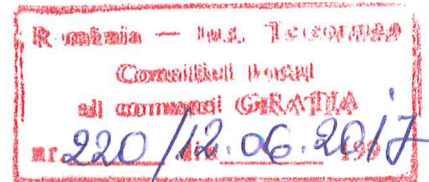 România — Jud. Teleorman
Consiliul Local
al comunei GRATIA
nr. 220 / 12.06.2017